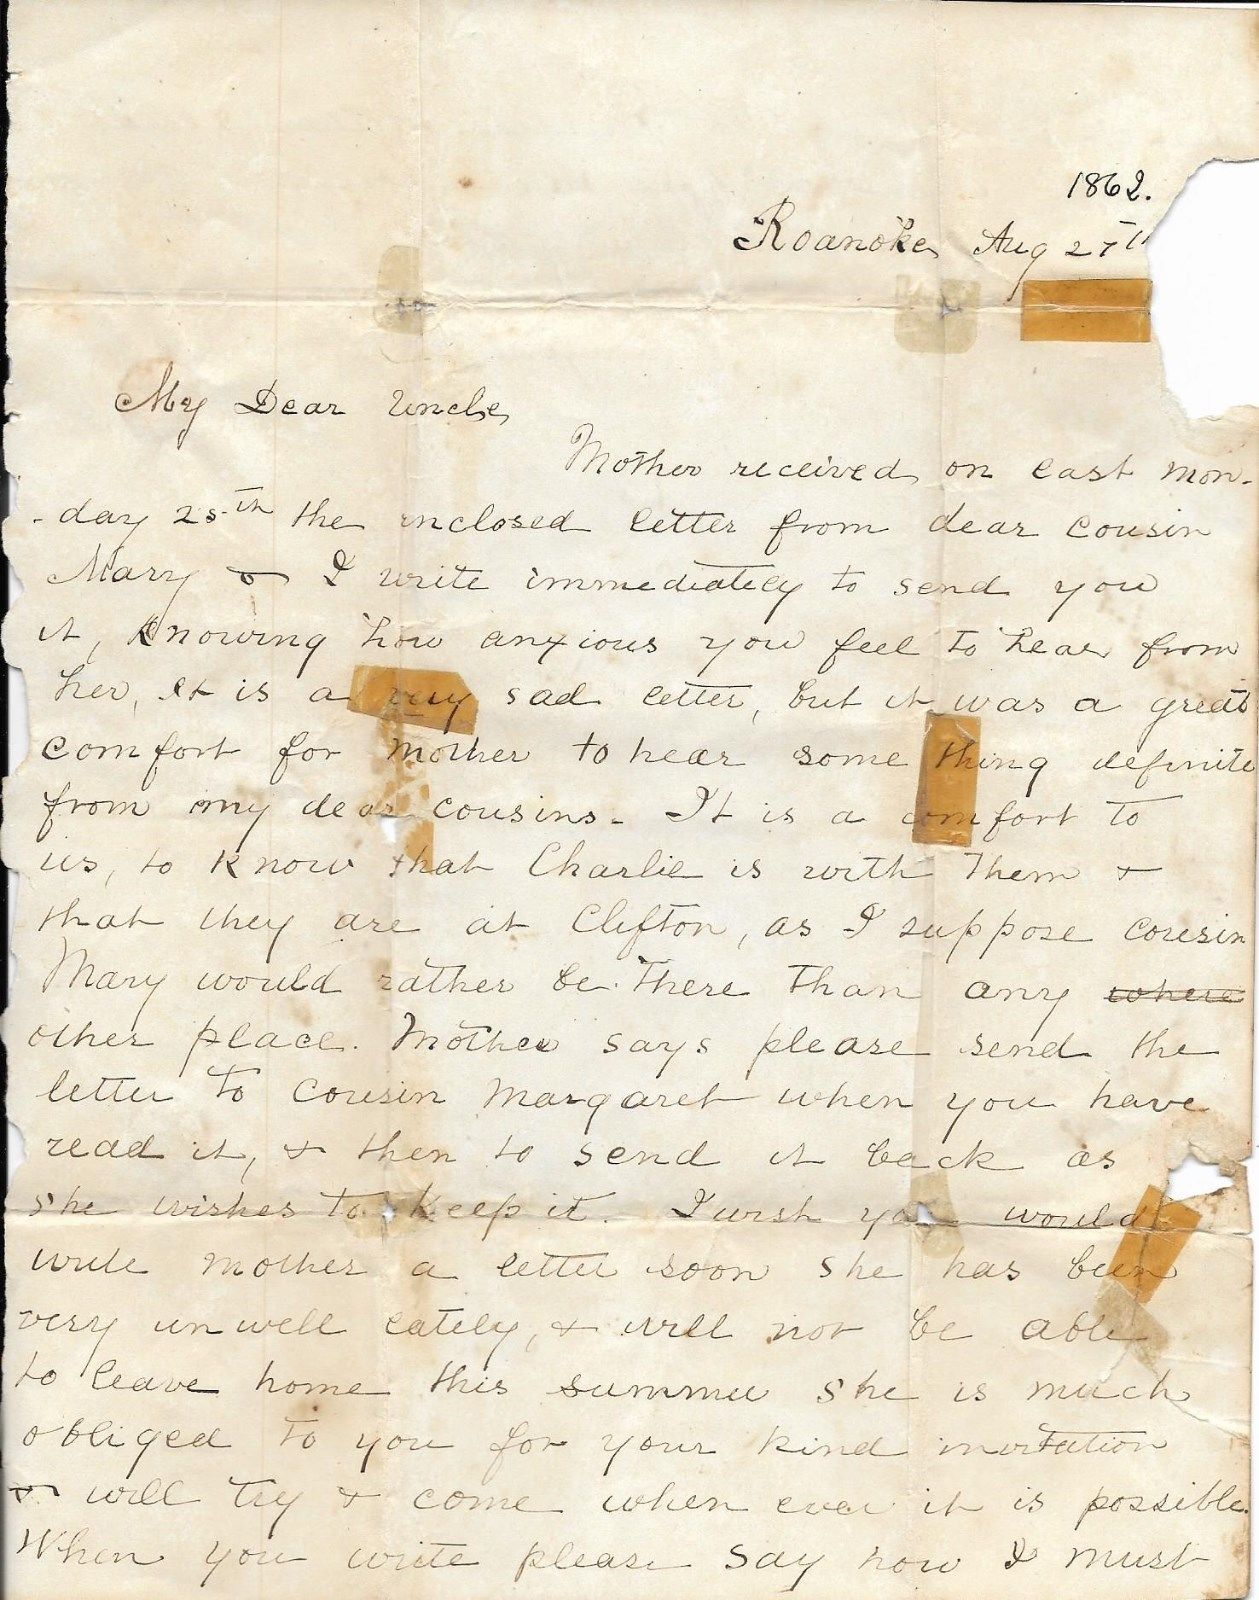 1862.
Roanoke, Aug 27th
My Dear Uncle,
Mother received, on last mon-
-day 25th the inclosed letter from dear cousin
Mary & I write immediately to send you
it, knowing how anxious you feel to hear from
her, It is a very sad letter, but it was a great
comfort for mother to hear some thing definite
from my dear cousins. It is a comfort to
us, to know that Charlie is with them &
that they are at Clifton, as I suppose cousin
Mary would rather be there than any where
other place. Mother says please send the
letter to cousin Margaret when you have
read it, & then to send it back as
she wishes to keep it. I wish you would
write mother a letter soon she has been
very unwell lately, & will not be able
to leave home this summer she is much
obliged to you for your kind invitation
& will try & come when ever it is possible.
When you write please say how I must